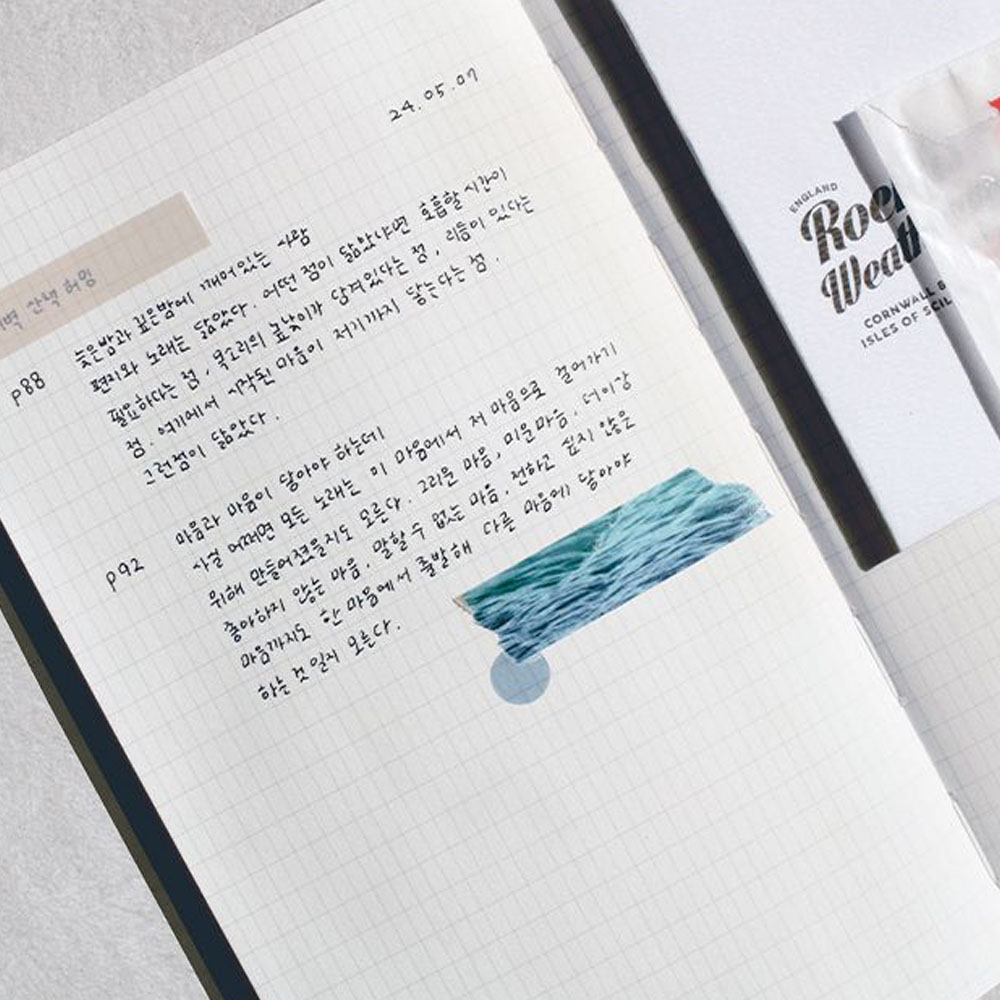 24.05.07
산책 허밍
p88
늦은밤과 깊은밤에 깨어있는 사람
편지와 노래는 닮았다. 어떤 점이 닮았냐면 호흡할 시간이
필요하다는 점, 목소리의 높낮이가 담겨있다는 점, 리듬이 있다는
점. 여기에서 시작된 마음이 저기까지 닿는다는 점.
그런점이 닮았다.
p92
마음과 마음이 닿아야 하는데
사실 어쩌면 모든 노래는 이 마음에서 저 마음으로 걸어가기
위해 만들어졌을지도 모른다. 그리운 마음, 미운마음, 더이상
좋아하지 않는 마음, 말할 수 없는 마음, 전하고 싶지 않은
마음까지도 한 마음에서 출발해 다른 마음에 닿아야
하는 것 일지 모른다.
ENGLAND
CORNWALL &
ISLES OF